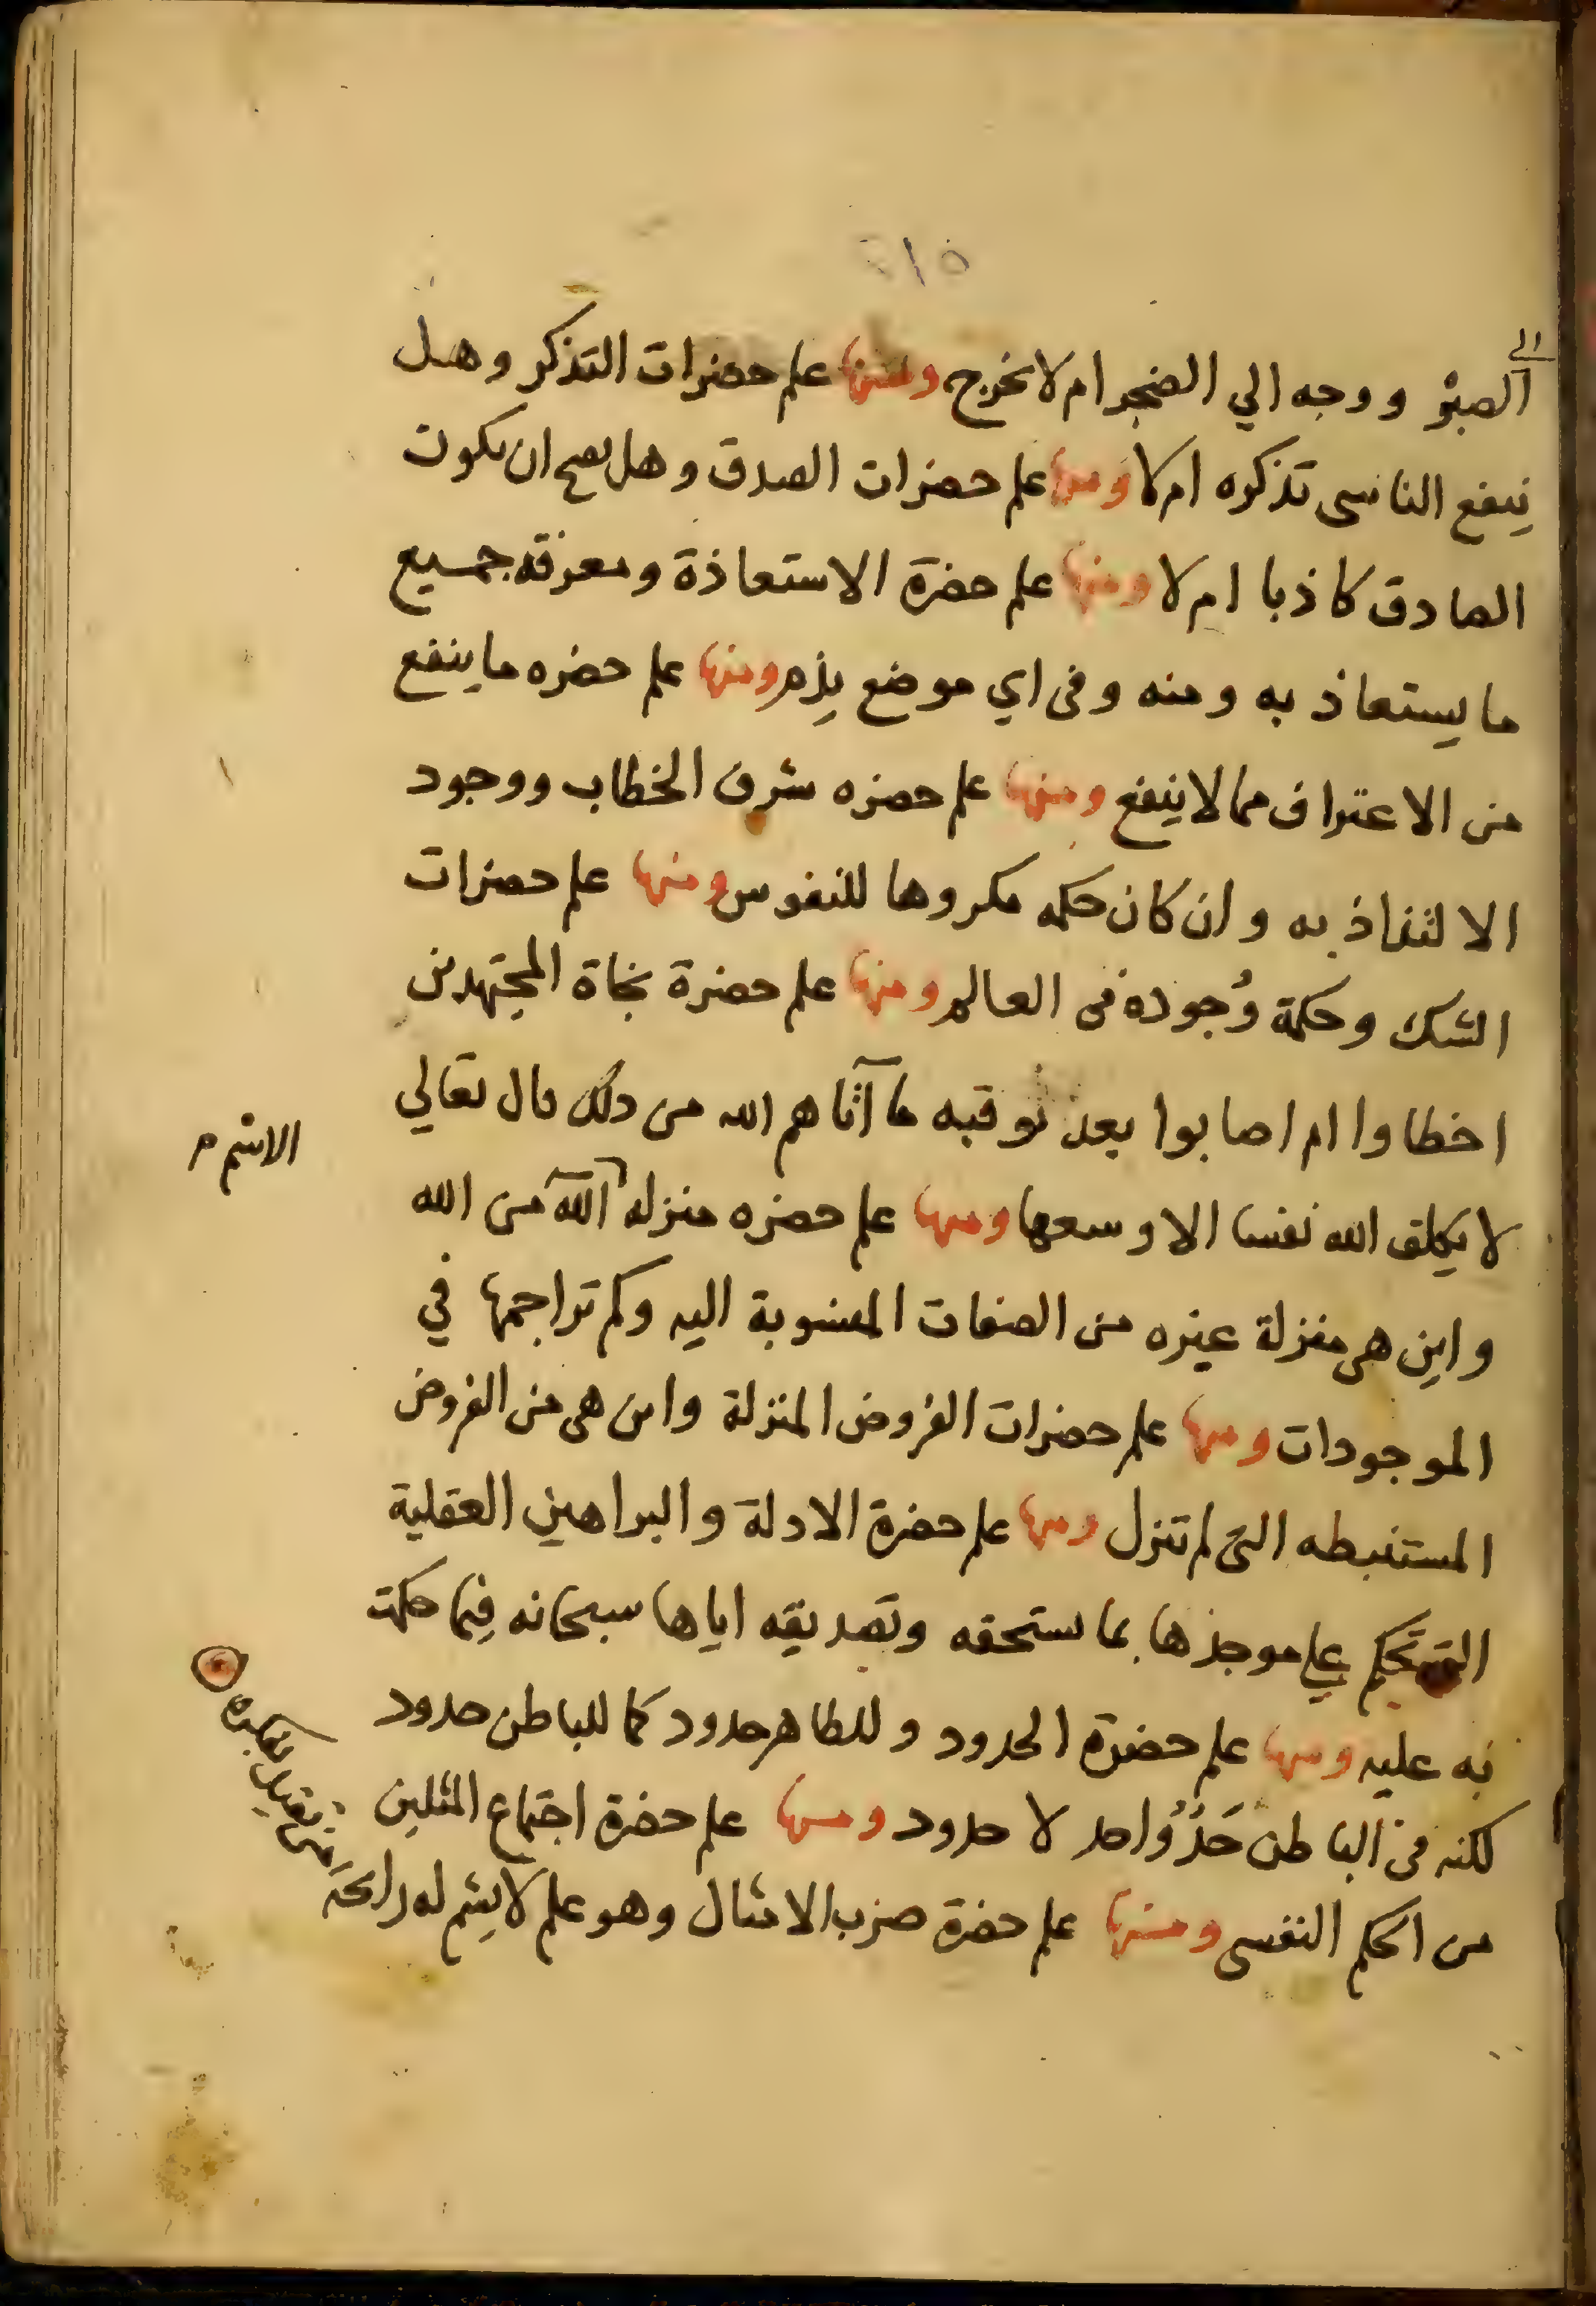 ٥١٢
الي
الصبر ووجه الي الضجر ام لا تخرج ومنها علم حضرات التذكر وهل
ينفع الناسى تذكره ام لا ومنها علم حضرات الصدق وهل يصح ان يكون
الصادق كاذبا ام لا ومنها علم حضرة الاستعاذة ومعرفة جميع
ما يستعاذ به ومنه وفى اي موضع يذم ومنها علم حضره ما ينفع
من الاعتراف مما لا ينفع ومنها علم حضره شرف الخطاب ووجود
الالتذاذ به وان كان حكمه مكروها للنفوس ومنها علم حضرات
الشك وحكمة وُجوده فى العالم ومنها علم حضرة نجاة المجتهدين
اخطاوا ام اصابوا بعد توفيه ما آتاهم الله من ذلك قال تعالي
لا يكلف الله نفسا الا وسعها ومنها علم حضره منزله الله من الله
الاسم م
واين هى منزلة غيره من الصفات المنسوبة اليه وكم تراجمها في
الموجودات ومنها علم حضرات الفروض المنزلة واين هى من الفروض
المستنبطه التى لم تنزل ومنها علم حضرة الادلة والبراهين العقلية
التى تحكم علي موجدها بما يستحقه وتصديقه اياها سبحانه فيما حكمت
به عليه ومنها علم حضرة الحدود وللظاهر حدود كما للباطن حدود
لكنه فى الباطن حَدٌ واحد لا حدود ومنها علم حضرة اجتماع المثلين
من الحكم النفسى ومنها علم حضرة ضرب الامثال وهو علم لا يشم له رائحة
من